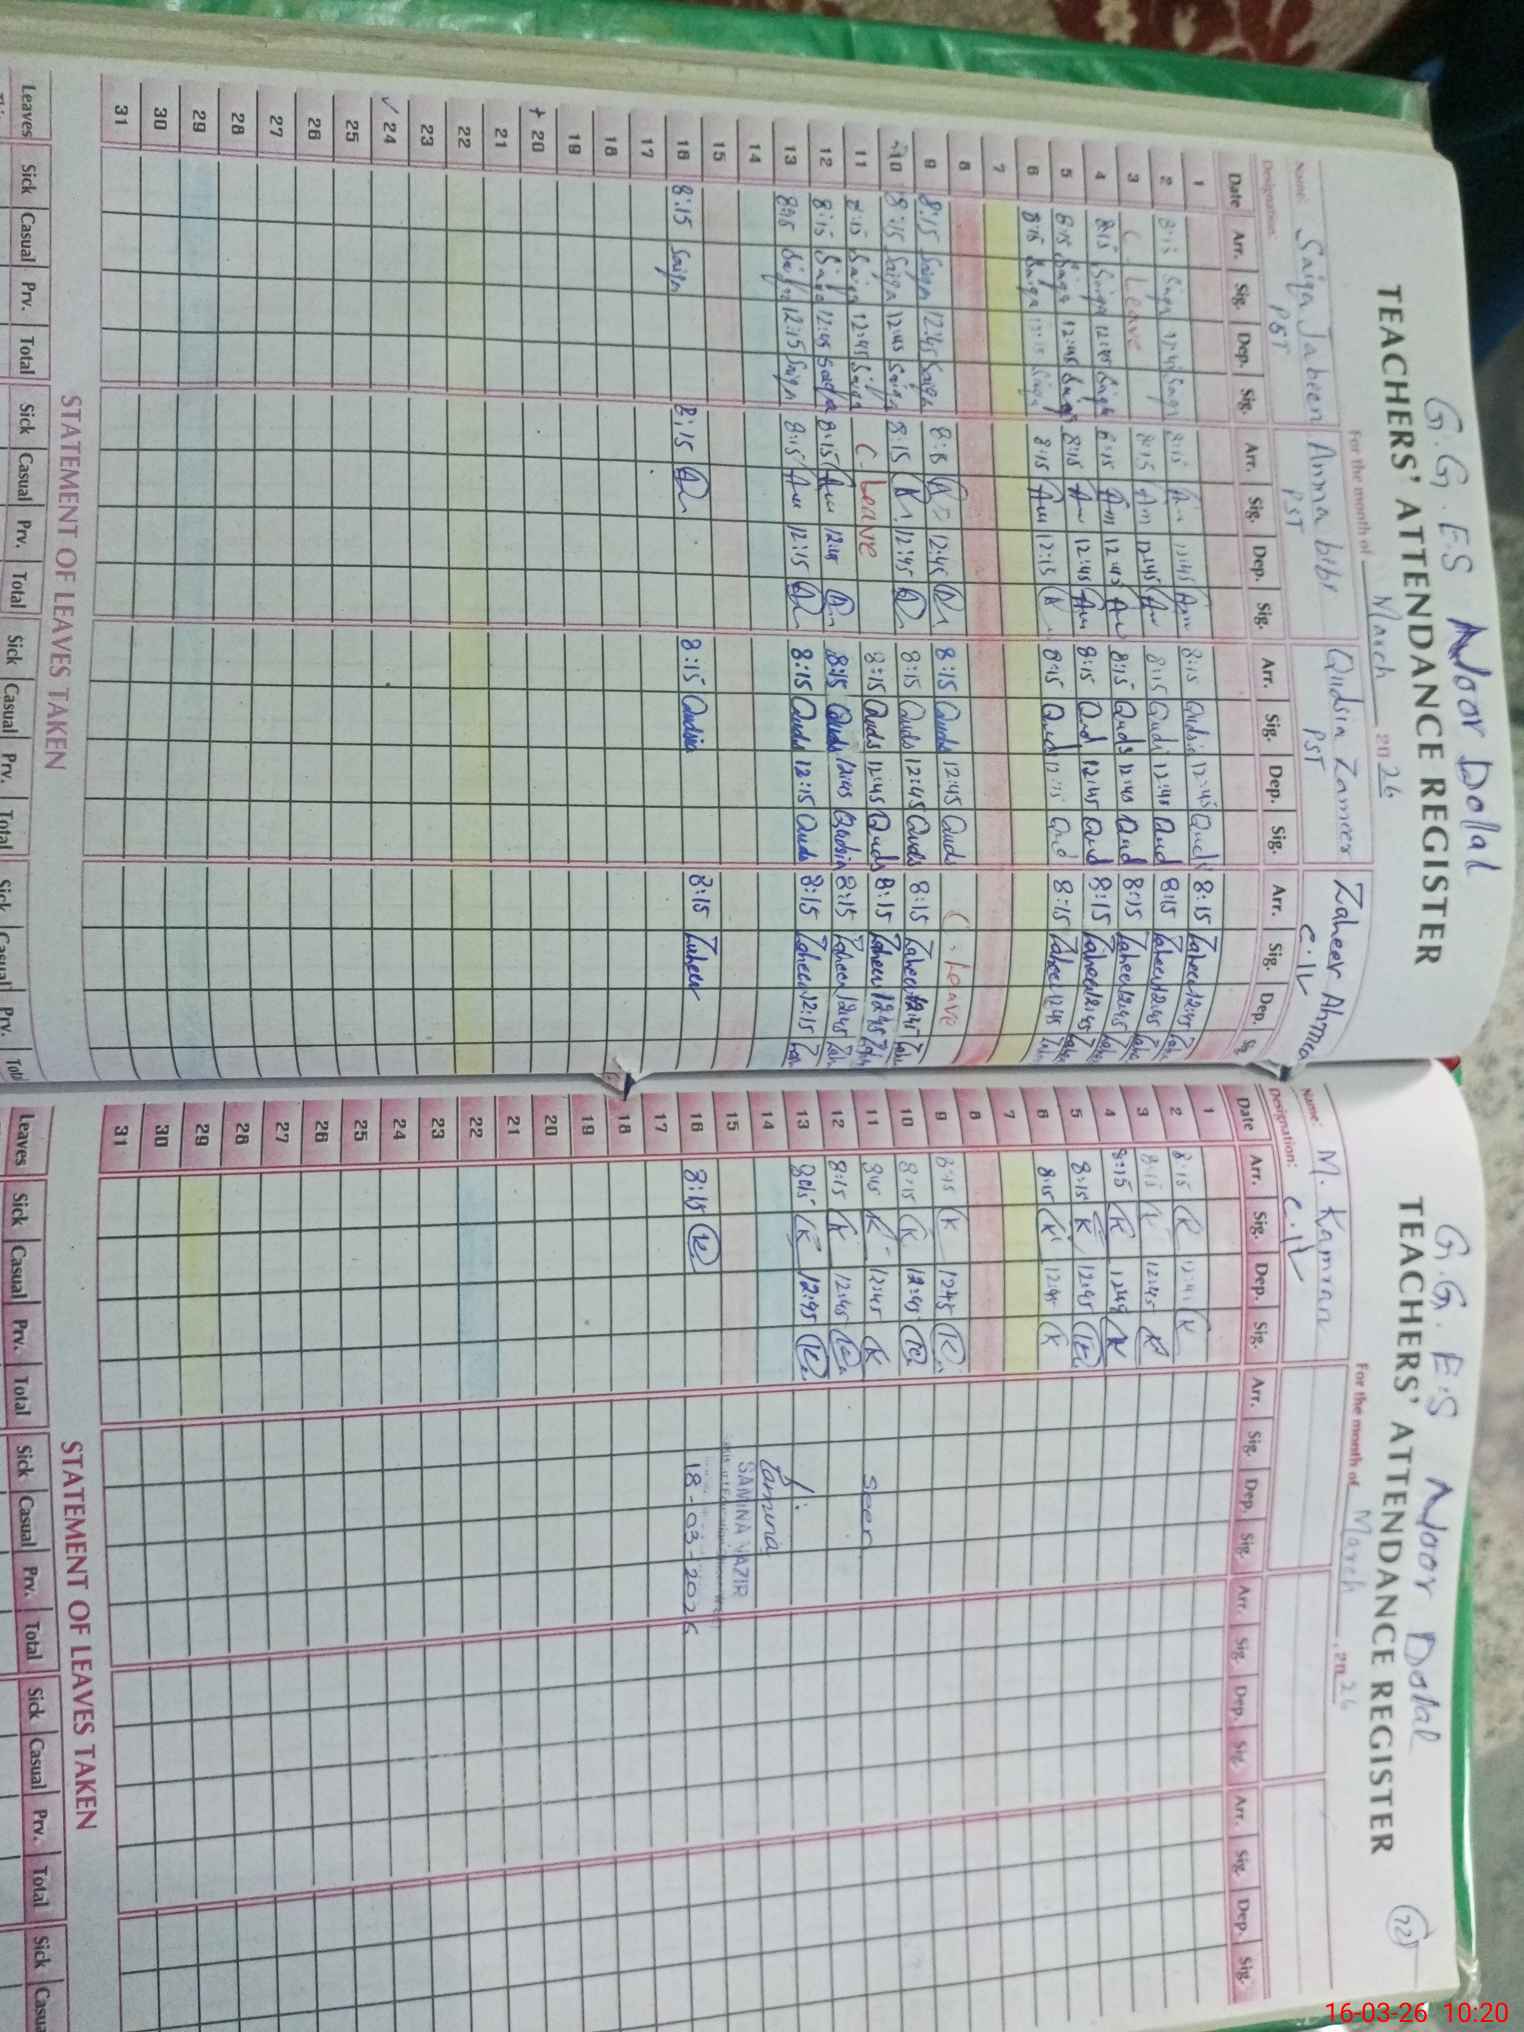 G.G.E.S Noor Dollal
TEACHERS' ATTENDANCE REGISTER
For the month of March 2026
Name: Saiqa Jabeen Amna bibi Qudsia Zameer Zaheer Ahmad
Designation: PST PST PST C.IV
Date Arr. Sig. Dep. Sig. Arr. Sig. Dep. Sig. Arr. Sig. Dep. Sig. Arr. Sig. Dep. Sig.
1 8:15 Zaheer 12:45
2 8:15 Saiqa 12:45 Saiqa 8:15 Am 12:45 Am 8:15 Qudsia 12:45 Quds 8:15 Zaheer 12:45
3 C. Leave 8:15 Am 12:45 Am 8:15 Quds 12:45 Qud 8:15 Zaheer 12:45
4 8:15 Saiqa 12:45 Saiqa 8:15 Am 12:45 Am 8:15 Quds 12:45 Qud 8:15 Zaheer 12:45
5 8:15 Saiqa 12:45 Saiqa 8:15 Am 12:45 Am 8:15 Qud 12:45 Qud 8:15 Zaheer 12:45
6 8:15 Saiqa 12:15 Saiqa 8:15 Am 12:15 8:15 Qud 12:15 Qud 8:15 Zaheer 12:45
7
8
9 8:15 Saiqa 12:45 Saiqa 8:15 12:45 8:15 Quds 12:45 Quds C. Leave
10 8:15 Saiqa 12:45 Saiqa 8:15 12:45 8:15 Quds 12:45 Quds 8:15 Zaheer 12:45
11 8:15 Saiqa 12:45 Saiqa C. Leave 8:15 Quds 12:45 Quds 8:15 Zaheer 12:45
12 8:15 Saiqa 12:45 Saiqa 8:15 Am 12:45 8:15 Quds 12:45 Qudsia 8:15 Zaheer 12:45
13 8:15 Saiqa 12:15 Saiqa 8:15 Am 12:15 8:15 Quds 12:15 Quds 8:15 Zaheer 12:15
14
15
16 8:15 Saiqa 8:15 8:15 Qudsia 8:15 Zaheer
17
18
19
+ 20
21
22
23
✓ 24
25
26
27
28
29
30
31
STATEMENT OF LEAVES TAKEN
Leaves Sick Casual Prv. Total Sick Casual Prv. Total Sick Casual Prv. Total Sick Casual Prv.
G.G.E.S Noor Dollal
TEACHERS' ATTENDANCE REGISTER
72
For the month of March, 2026
Name: M. Kamran
Designation: C.IV
Date Arr. Sig. Dep. Sig. Arr. Sig. Dep. Sig. Arr. Sig. Dep. Sig. Arr. Sig. Dep. Sig.
1
2 8:15 K 12:45 K
3 8:15 K 12:45 K
4 8:15 K 12:45 K
5 8:15 K 12:45 K
6 8:15 K 12:45 K
7
8
9 8:15 K 12:45 K
10 8:15 K 12:45 K
11 8:15 K 12:45 K Seen
12 8:15 K 12:45 K
13 8:15 K 12:45 K
14
15 SAMINA WAZIR
16 8:15 K 18-03-2026
17
18
19
20
21
22
23
24
25
26
27
28
29
30
31
STATEMENT OF LEAVES TAKEN
Leaves Sick Casual Prv. Total Sick Casual Prv. Total Sick Casual Prv. Total Sick
16-03-26 10:20